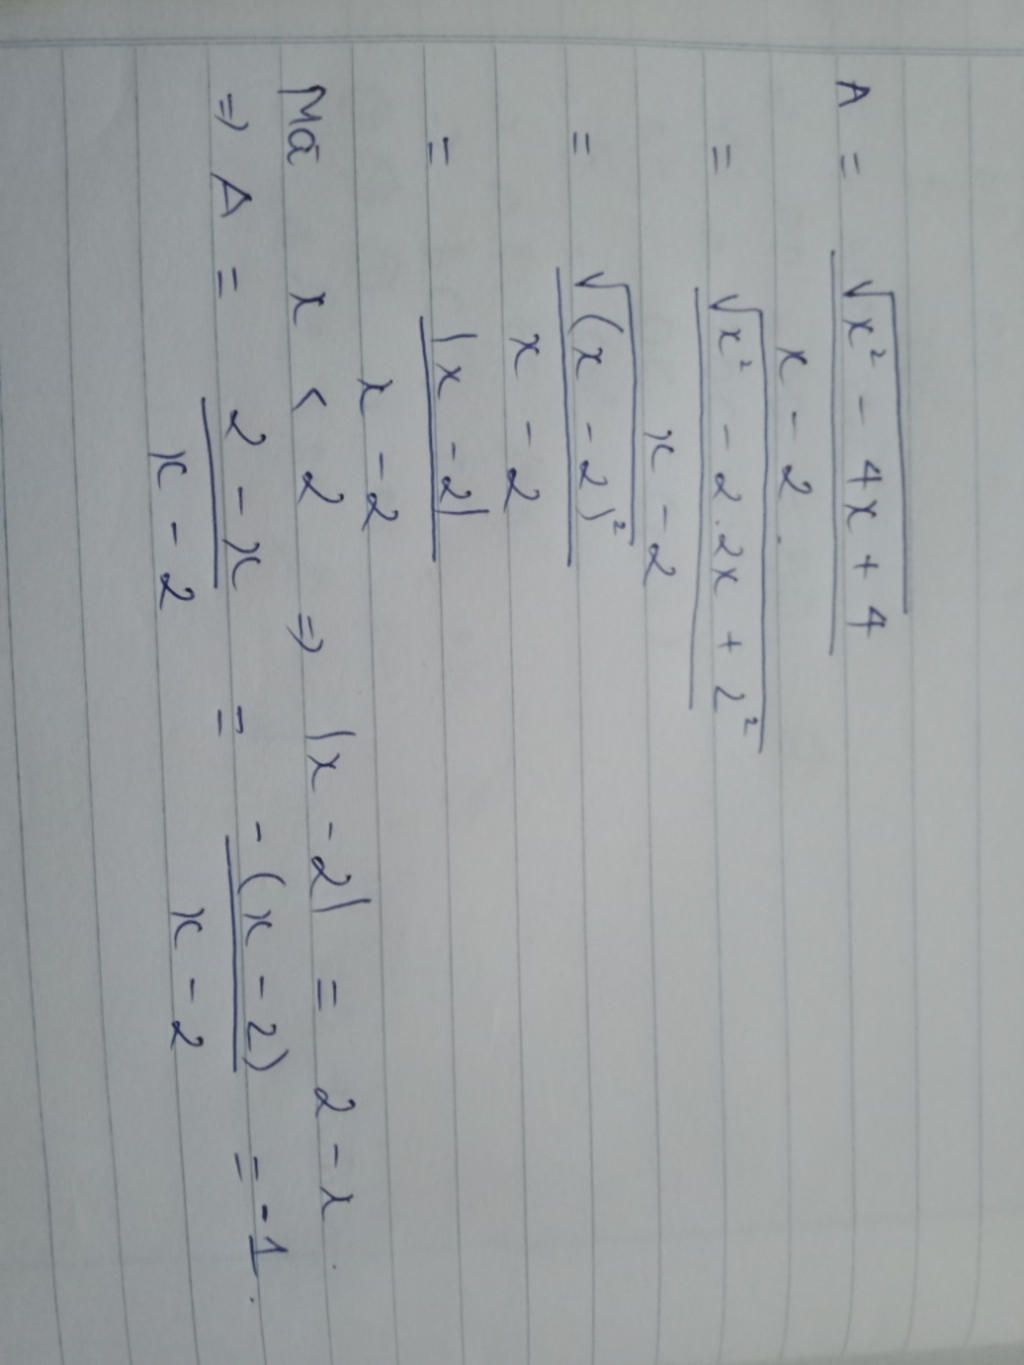 A = √(x² - 4x + 4) / (x - 2).
= √(x² - 2.2x + 2²) / (x - 2)
= √((x - 2)²) / (x - 2)
= |x - 2| / (x - 2)
Mà x < 2 => |x - 2| = 2 - x.
=> A = (2 - x) / (x - 2) = -(x - 2) / (x - 2) = -1.